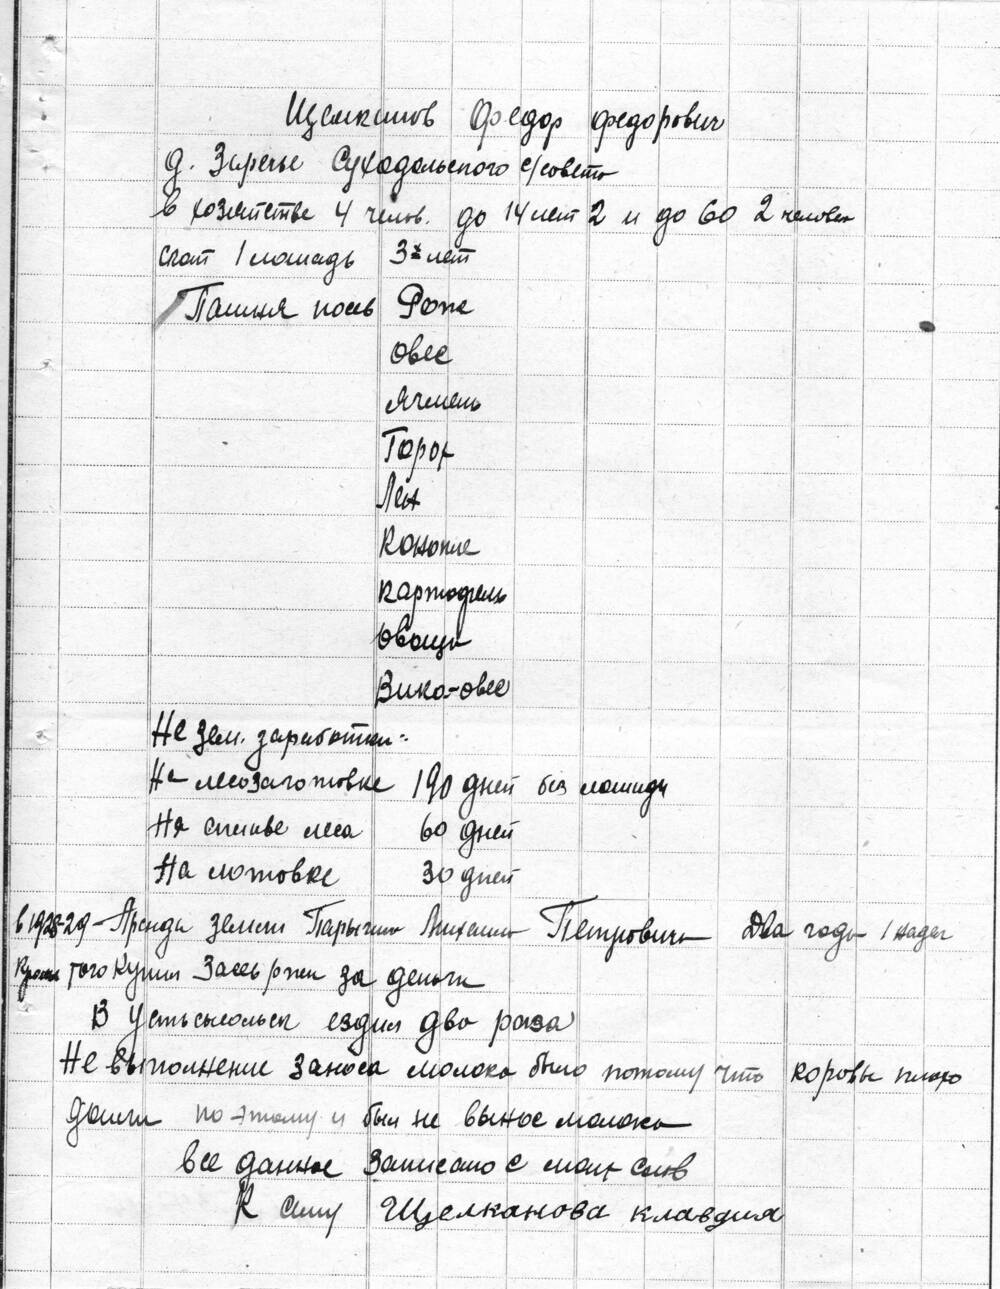 Щелканов Федор Федорович
д. Заречье Суходольского с/совета
в хозяйстве 4 челов. до 14 лет 2 и до 60 2 человек
скот 1 лошадь 3х лет
Пашня посев Рожь
овес
Ячмень
Горох
Лен
Конопле
Картофель
Овощи
Вико-овес
Не зем. заработки:
На лесозаготовке 190 дней без лошади
На сплаве леса 60 дней
На лотовке 30 дней
в 1928-29 - Аренда земли Михаила Петровича Два года 1 надел
Кроме того Купил Засев ржи за деньги
В Устьсысольск ездил два раза
Не выполнение заноса молока было потому что коровы плохо
доили по-этому и был не вынос молока
все данные Записано с моих слов
К сему Щелканова Клавдия